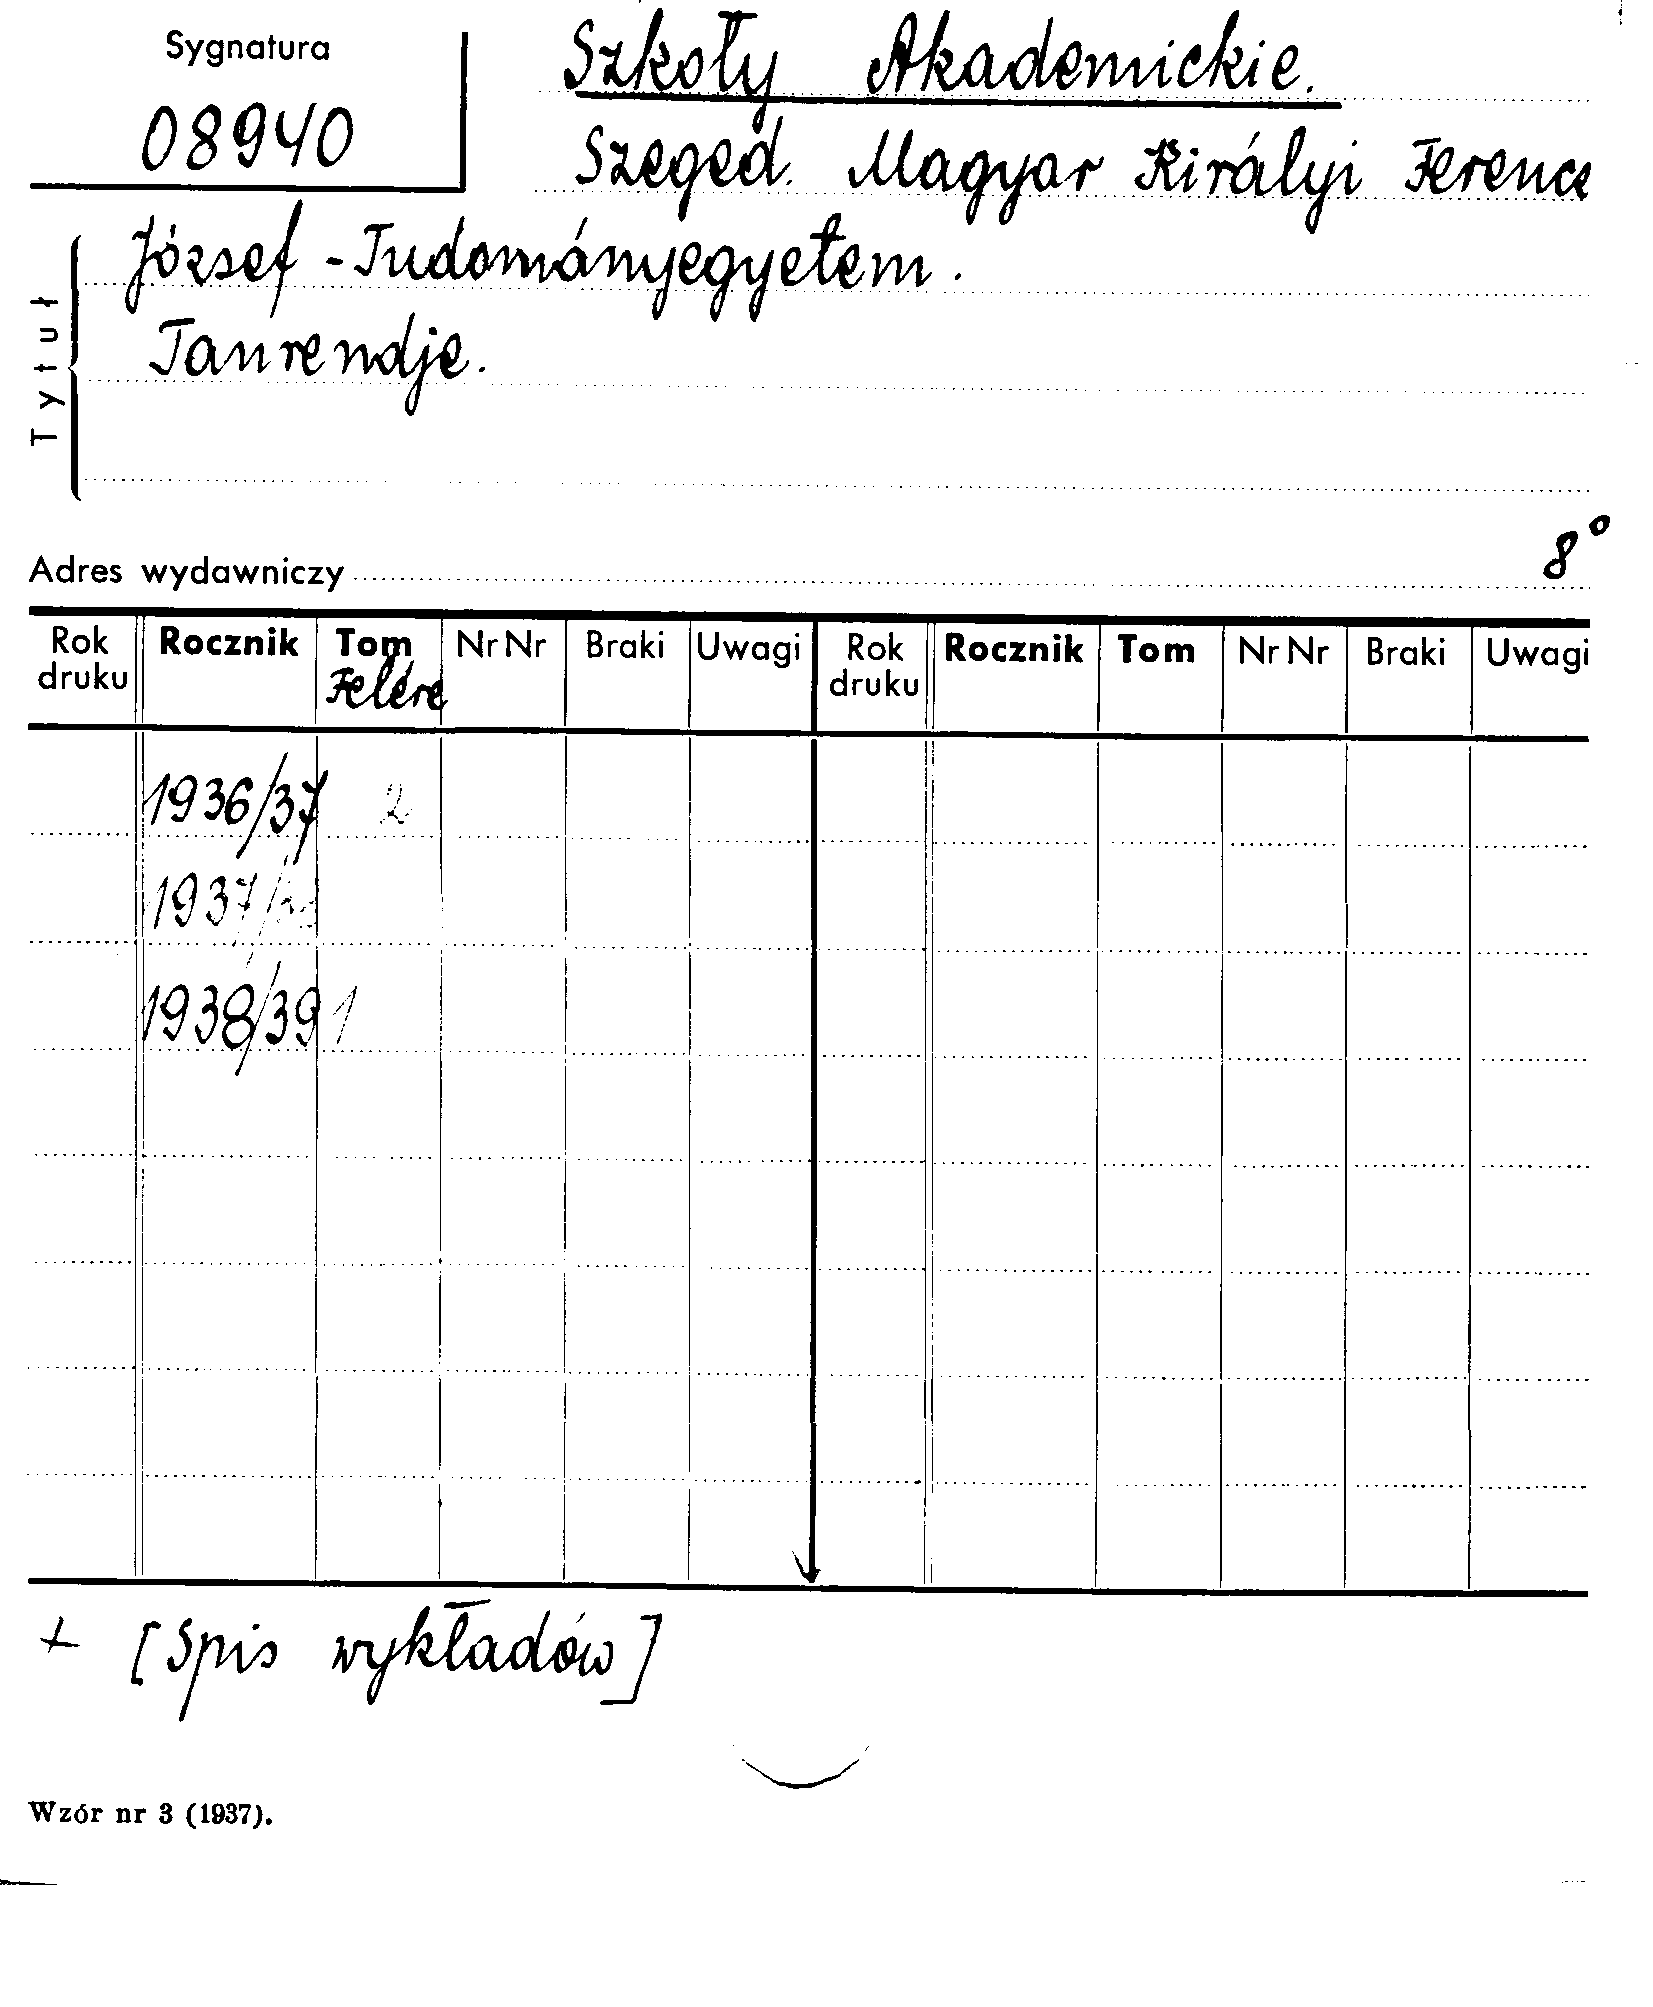 Sygnatura
08940
Szkoły Akademickie.
Szeged. Magyar Királyi Ferencz
József-Tudományegyetem.
Tanrendje.
Tytuł
8°
Adres wydawniczy
Rok druku Rocznik Tom Nr Nr Braki Uwagi Rok druku Rocznik Tom Nr Nr Braki Uwagi
Felére
1936/37 2
1937/
1938/39 1
+ [Spis wykładów]
Wzór nr 3 (1937).